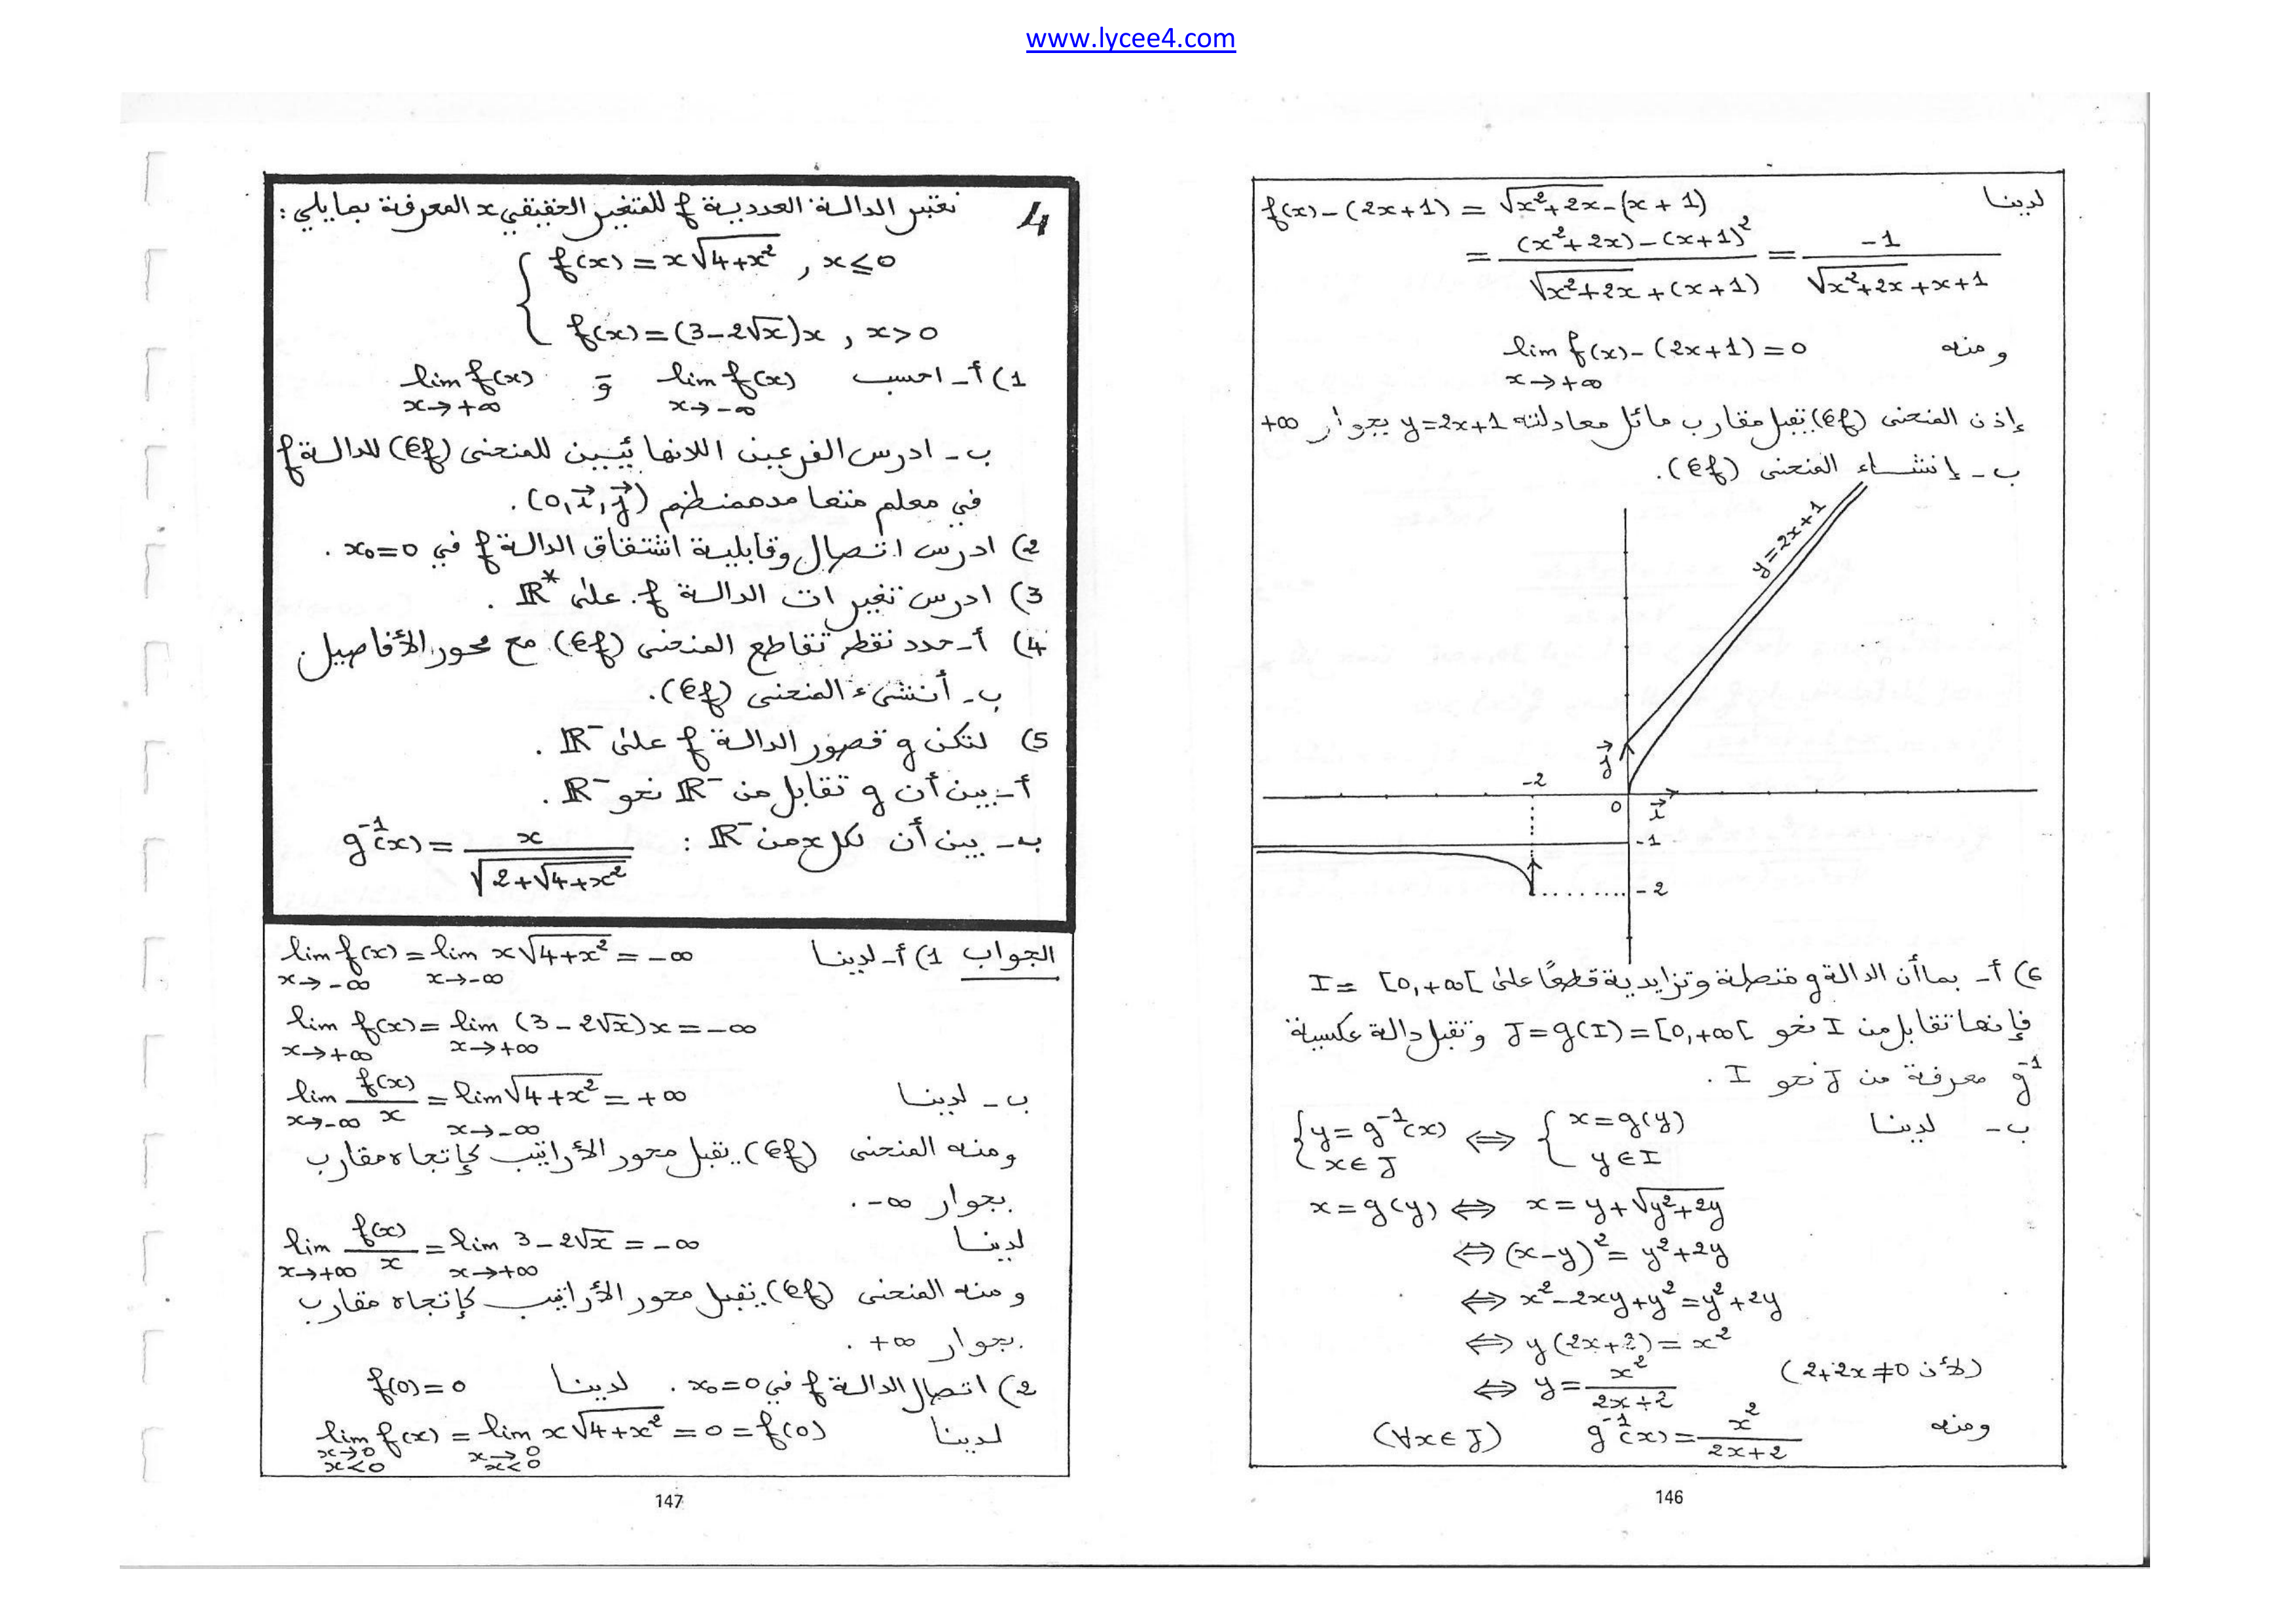 www.lycee4.com
لدينا f(x)-(2x+1) = √(x²+2x) - (x+1)
= ((x²+2x)-(x+1)²)/(√(x²+2x)+(x+1)) = -1/(√(x²+2x)+x+1)
ومنه lim f(x)-(2x+1)=0
x→+∞
إذن المنحنى (Cf) يقبل مقارب مائل معادلته y=2x+1 بجوار +∞
ب- إنشاء المنحنى (Cf).
y=2x+1
j
-2
0 i
-1
-2
6) أ- بما أن الدالة g متصلة وتزايدية قطعًا على I = [0,+∞[
فإنها تقابل من I نحو J=g(I)=[0,+∞[ وتقبل دالة عكسية
g⁻¹ معرفة من J نحو I .
ب- لدينا { y=g⁻¹(x) , x∈J ⟺ { x=g(y) , y∈I
x=g(y) ⟺ x=y+√(y²+2y)
⟺ (x-y)²=y²+2y
⟺ x²-2xy+y²=y²+2y
⟺ y(2x+2)=x²
⟺ y=x²/(2x+2) (لأن 2+2x≠0)
ومنه g⁻¹(x)=x²/(2x+2) (∀x∈J)
146
4 نعتبر الدالة العددية f للمتغير الحقيقي x المعرفة بمايلي :
{ f(x)=x√(4+x²) , x≤0
f(x)=(3-2√x)x , x>0
1) أ- احسب lim f(x) و lim f(x)
x→-∞ x→+∞
ب- ادرس الفرعين اللانهائيين للمنحنى (Cf) للدالة f
في معلم متعامد ممنظم (0,i,j) .
2) ادرس اتصال وقابلية اشتقاق الدالة f في x₀=0 .
3) ادرس تغيرات الدالة f على ℝ* .
4) أ- حدد نقط تقاطع المنحنى (Cf) مع محور الأفاصيل.
ب- أنشئ المنحنى (Cf).
5) لتكن g قصور الدالة f على ℝ⁻ .
أ- بين أن g تقابل من ℝ⁻ نحو ℝ⁻ .
ب- بين أن لكل x من ℝ⁻ : g⁻¹(x) = x/√(2+√(4+x²))
الجواب 1) أ- لدينا lim f(x) = lim x√(4+x²) = -∞
x→-∞ x→-∞
lim f(x) = lim (3-2√x)x = -∞
x→+∞ x→+∞
ب- لدينا lim f(x)/x = lim √(4+x²) = +∞
x→-∞ x→-∞
ومنه المنحنى (Cf) يقبل محور الأراتيب كإتجاه مقارب
بجوار -∞ .
لدينا lim f(x)/x = lim 3-2√x = -∞
x→+∞ x→+∞
ومنه المنحنى (Cf) يقبل محور الأراتيب كإتجاه مقارب
بجوار +∞ .
2) اتصال الدالة f في x₀=0 . لدينا f(0)=0
لدينا lim f(x) = lim x√(4+x²) = 0 = f(0)
x→0 x→0
x<0 x<0
147